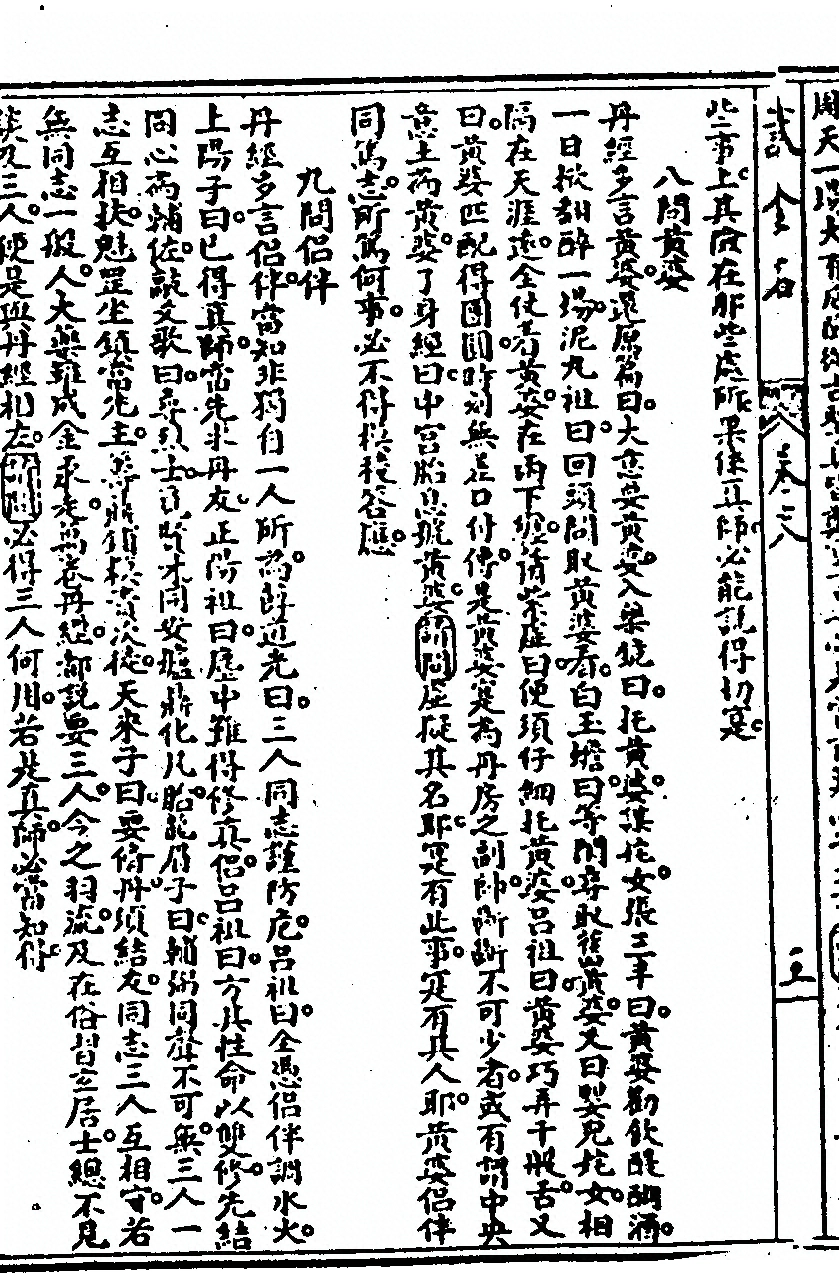 試金石 卷二八
些事上其竅在那些處所果係真師必能說得切寔
八問黃婆
丹經多言黃婆還原篇曰大意要黃婆入藥鏡曰托黃婆媒姹女張三丰曰黃婆勸飲醍醐酒
一日掀翻醉一場泥丸祖曰回頭問取黃婆看白玉蟾曰等閒尋取舊黃婆又曰嬰兒姹女相
隔在天涯遠全仗着黃婆在兩下紫虛曰便須仔細托黃婆呂祖曰黃婆巧弄千般舌又
曰黃婆匹配得團圓時刻無差口付傳是黃婆寔為丹房之副帥斷斷不可少者或有謂中央
意土為黃婆了身經曰中宮胎息號黃婆請問虛擬其名耶寔有此事寔有其人耶黃婆侶伴
同篤志所篤何事必不得模稜答應
九問侶伴
丹經多言侶伴當知非獨自一人所為薛道光曰三人同志謹防危呂祖曰全憑侶伴調水火
上陽子曰已得真師當先求丹友正陽祖曰塵中難得修真侶呂祖曰方其性命以雙修先結
同心為輔佐敲爻歌曰尋烈士覓賢才同安爐鼎化凡胎龍眉子曰輔弼同聲不可無三人一
志互相扶魁罡坐鎮當先主天來子曰要脩丹須結友同志三人互相守若
無同志一般人大藥難成金汞走萬卷丹經都說要三人今之羽流及在俗習玄居士總不見
談及三人便是與丹經相左請問必得三人何用若是真師必當知得